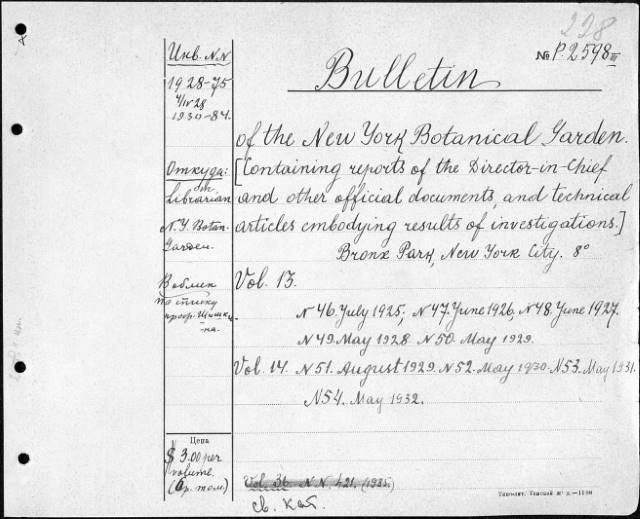 228
№ P.2598 III
Bulletin
of the New York Botanical Garden.
[Containing reports of the Director-in-Chief
and other official documents, and technical
articles embodying results of investigations.]
Bronx Park, New York City. 8°
Vol. 13.
N 46. July 1925; N 47. June 1926, N 48. June 1927.
N 49. May 1928 N 50. May 1929.
Vol. 14. N 51. August 1929. N 52. May 1930. N 53. May 1931.
N 54. May 1932.
Vol. 36. N N. 421. (1935)
св. кат.
Инв. N.N
1928-75
4/IV 28
1930-84.
Откуда:
Librarian
N.Y. Botan-
Garden.
по списку
проф. Шишк
на.
Цена
$ 3.00 per
volume.
(6 р. том)
Ташкент,